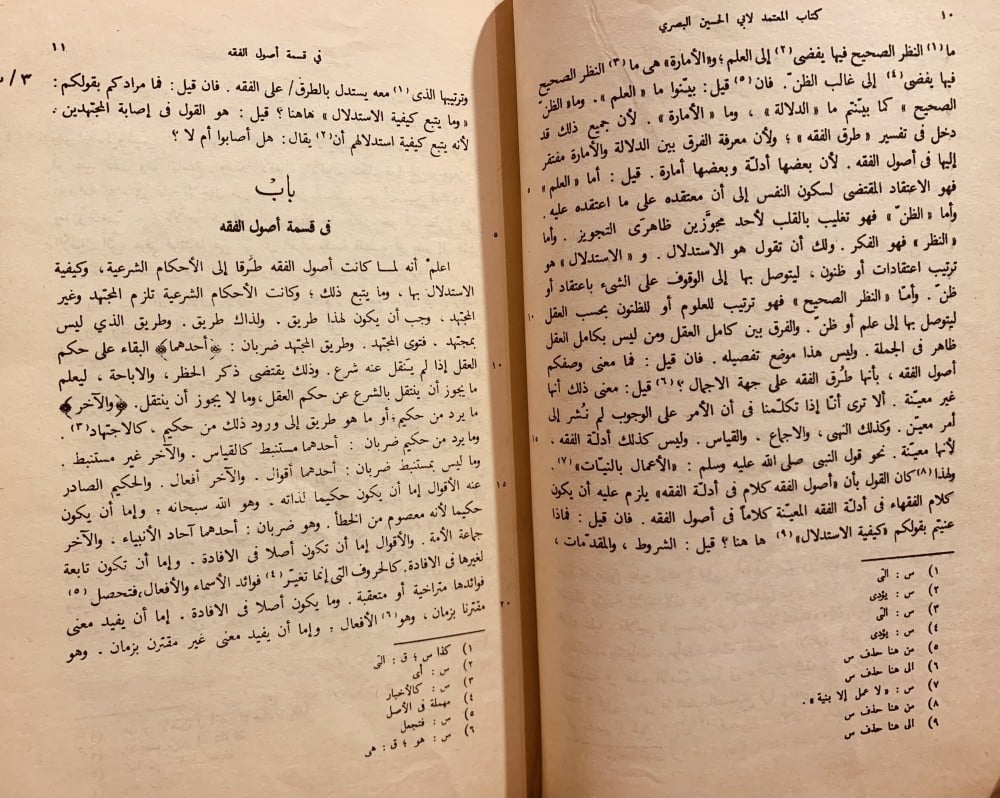 ١٠
كتاب المعتمد لابي الحسين البصري
ما (١) النظر الصحيح فيها يفضى (٢) إلى العلم ؛ و«الأمارة» هى ما (٣) النظر الصحيح
فيها يفضى (٤) إلى غالب الظنّ . فان (٥) قيل : بيّنوا ما « العلم » . وما « الظنّ
الصحيح » كما بيّنتم ما « الدلالة » ، وما « الأمارة » . لأن جميع ذلك قد
دخل فى تفسير « طرق الفقه » ؛ ولأن معرفة الفرق بين الدلالة والأمارة مفتقر
إليها فى أصول الفقه . لأن بعضها أدلـّة وبعضها أمارة . قيل : أما « العلم »
فهو الاعتقاد المقتضى لسكون النفس إلى أن معتقده على ما اعتقده عليه .
وأما « الظنّ » فهو تغليب بالقلب لأحد مجوَّزين ظاهرَى التجويز . وأما
« النظر » فهو الفكر . ولك أن تقول هو الاستدلال . و « الاستدلال » هو
ترتيب اعتقادات أو ظنون ، ليتوصل بها إلى الوقوف على الشىء باعتقاد أو
ظنّ . وأمّا « النظر الصحيح » فهو ترتيب للعلوم أو للظنون بحسب العقل
ليتوصل بها إلى علم أو ظنّ . والفرق بين كامل العقل ومن ليس بكامل العقل
ظاهر فى الجملة . وليس هذا موضع تفصيله . فان قيل : فما معنى وصفكم
أصول الفقه ، بأنها طُرق الفقه على جهة الاجمال ؟ (٦) قيل : معنى ذلك أنها
غير معيـّنة . ألا ترى أنـّا إذا تكلـّمنا فى أن الأمر على الوجوب لم نُشر إلى
أمر معيـّن . وكذلك النهى ، والاجماع ، والقياس . وليس كذلك أدلـّة الفقه ،
لأنها معيـّنة . نحو قول النبى صلى الله عليه وسلم : «الأعمال بالنيـّات» (٧) .
ولهذا (٨) كان القول بأن «أصول الفقه كلام فى أدلـّة الفقه» يلزم عليه أن يكون
كلام الفقهاء فى أدلـّة الفقه المعيـّنة كلاماً فى أصول الفقه . فان قيل : فماذا
عنيتم بقولكم «كيفية الاستدلال» (٩) ها هنا ؟ قيل : الشروط ، والمقدّمات ،
٥
١٠
١٥
١) س : التى
٢) س : يؤدى
٣) س : التى
٤) س : يؤدى
٥) من هنا حذف س
٦) الى هنا حذف س
٧) س : « لا عمل إلا بنية » .
٨) من هنا حذف س
٩) الى هنا حذف س
فى قسمة أصول الفقه
١١
وترتيبها الذى (١) معه يستدل بالطرق/ على الفقه . فان قيل : فما مرادكم بقولكم :
٣ /
« وما يتبع كيفية الاستدلال » هاهنا ؟ قيل : هو القول فى إصابة المجتهدين .
لأنه يتبع كيفية استدلالهم أن (٢) يقال : هل أصابوا أم لا ؟
بابْ
فى قسمة أصول الفقه
اعلمْ أنه لمـا كانت أصول الفقه طُرقا إلى الأحكام الشرعية ، وكيفية
الاستدلال بها ، وما يتبع ذلك ؛ وكانت الأحكام الشرعية تلزم المجتهد وغير
المجتهد . وجب أن يكون لهذا طريق . ولذاك طريق . وطريق الذي ليس
بمجتهد . فتوى المجتهد . وطريق المجتهد ضربان : ﴿أحدهما﴾ البقاء على حكم
العقل إذا لم يـَنقل عنه شرع . وذلك يقتضى ذكر الحظر ، والاباحة ، ليعلم
ما يجوز أن ينتقل بالشرع عن حكم العقل ، وما لا يجوز أن ينتقل . ﴿والآخر﴾
ما يرد من حكيم ، أو ما هو طريق إلى ورود ذلك من حكيم . كالاجتهاد (٣) .
وما يرد من حكيم ضربان : أحدهما مستنبط كالقياس . والآخر غير مستنبط .
وما ليس بمستنبط ضربان : أحدهما أقوال . والآخر أفعال . والحكيم الصادر
عنه الأقوال إما أن يكون حكيما لذاته . وهو الله سبحانه . وإما أن يكون
حكيما لأنه معصوم من الخطأ . وهو ضربان : أحدهما آحاد الأنبياء . والآخر
جماعة الأمة . والأقوال إما أن تكون أصلا فى الافادة . وإما أن تكون تابعة
لغيرها فى الافادة. كالحروف التى إنما تغيـّر (٤) فوائد الأسماء والأفعال ، فتحصل (٥)
فوائدها متراخية أو متعقبة . وما يكون أصلا فى الافادة . إما أن يفيد معنى
مقترنا بزمان ، وهو (٦) الأفعال . وإما أن يفيد معنى غير مقترن بزمان . وهو
٥
١٠
١٥
٢٠
١) كذا س ؛ ق : التى
٢) س : أى
٣) س : كالأخبار
٤) مهملة فى الأصل
٥) س : فتجعل
٦) س : هو ؛ ق : هى